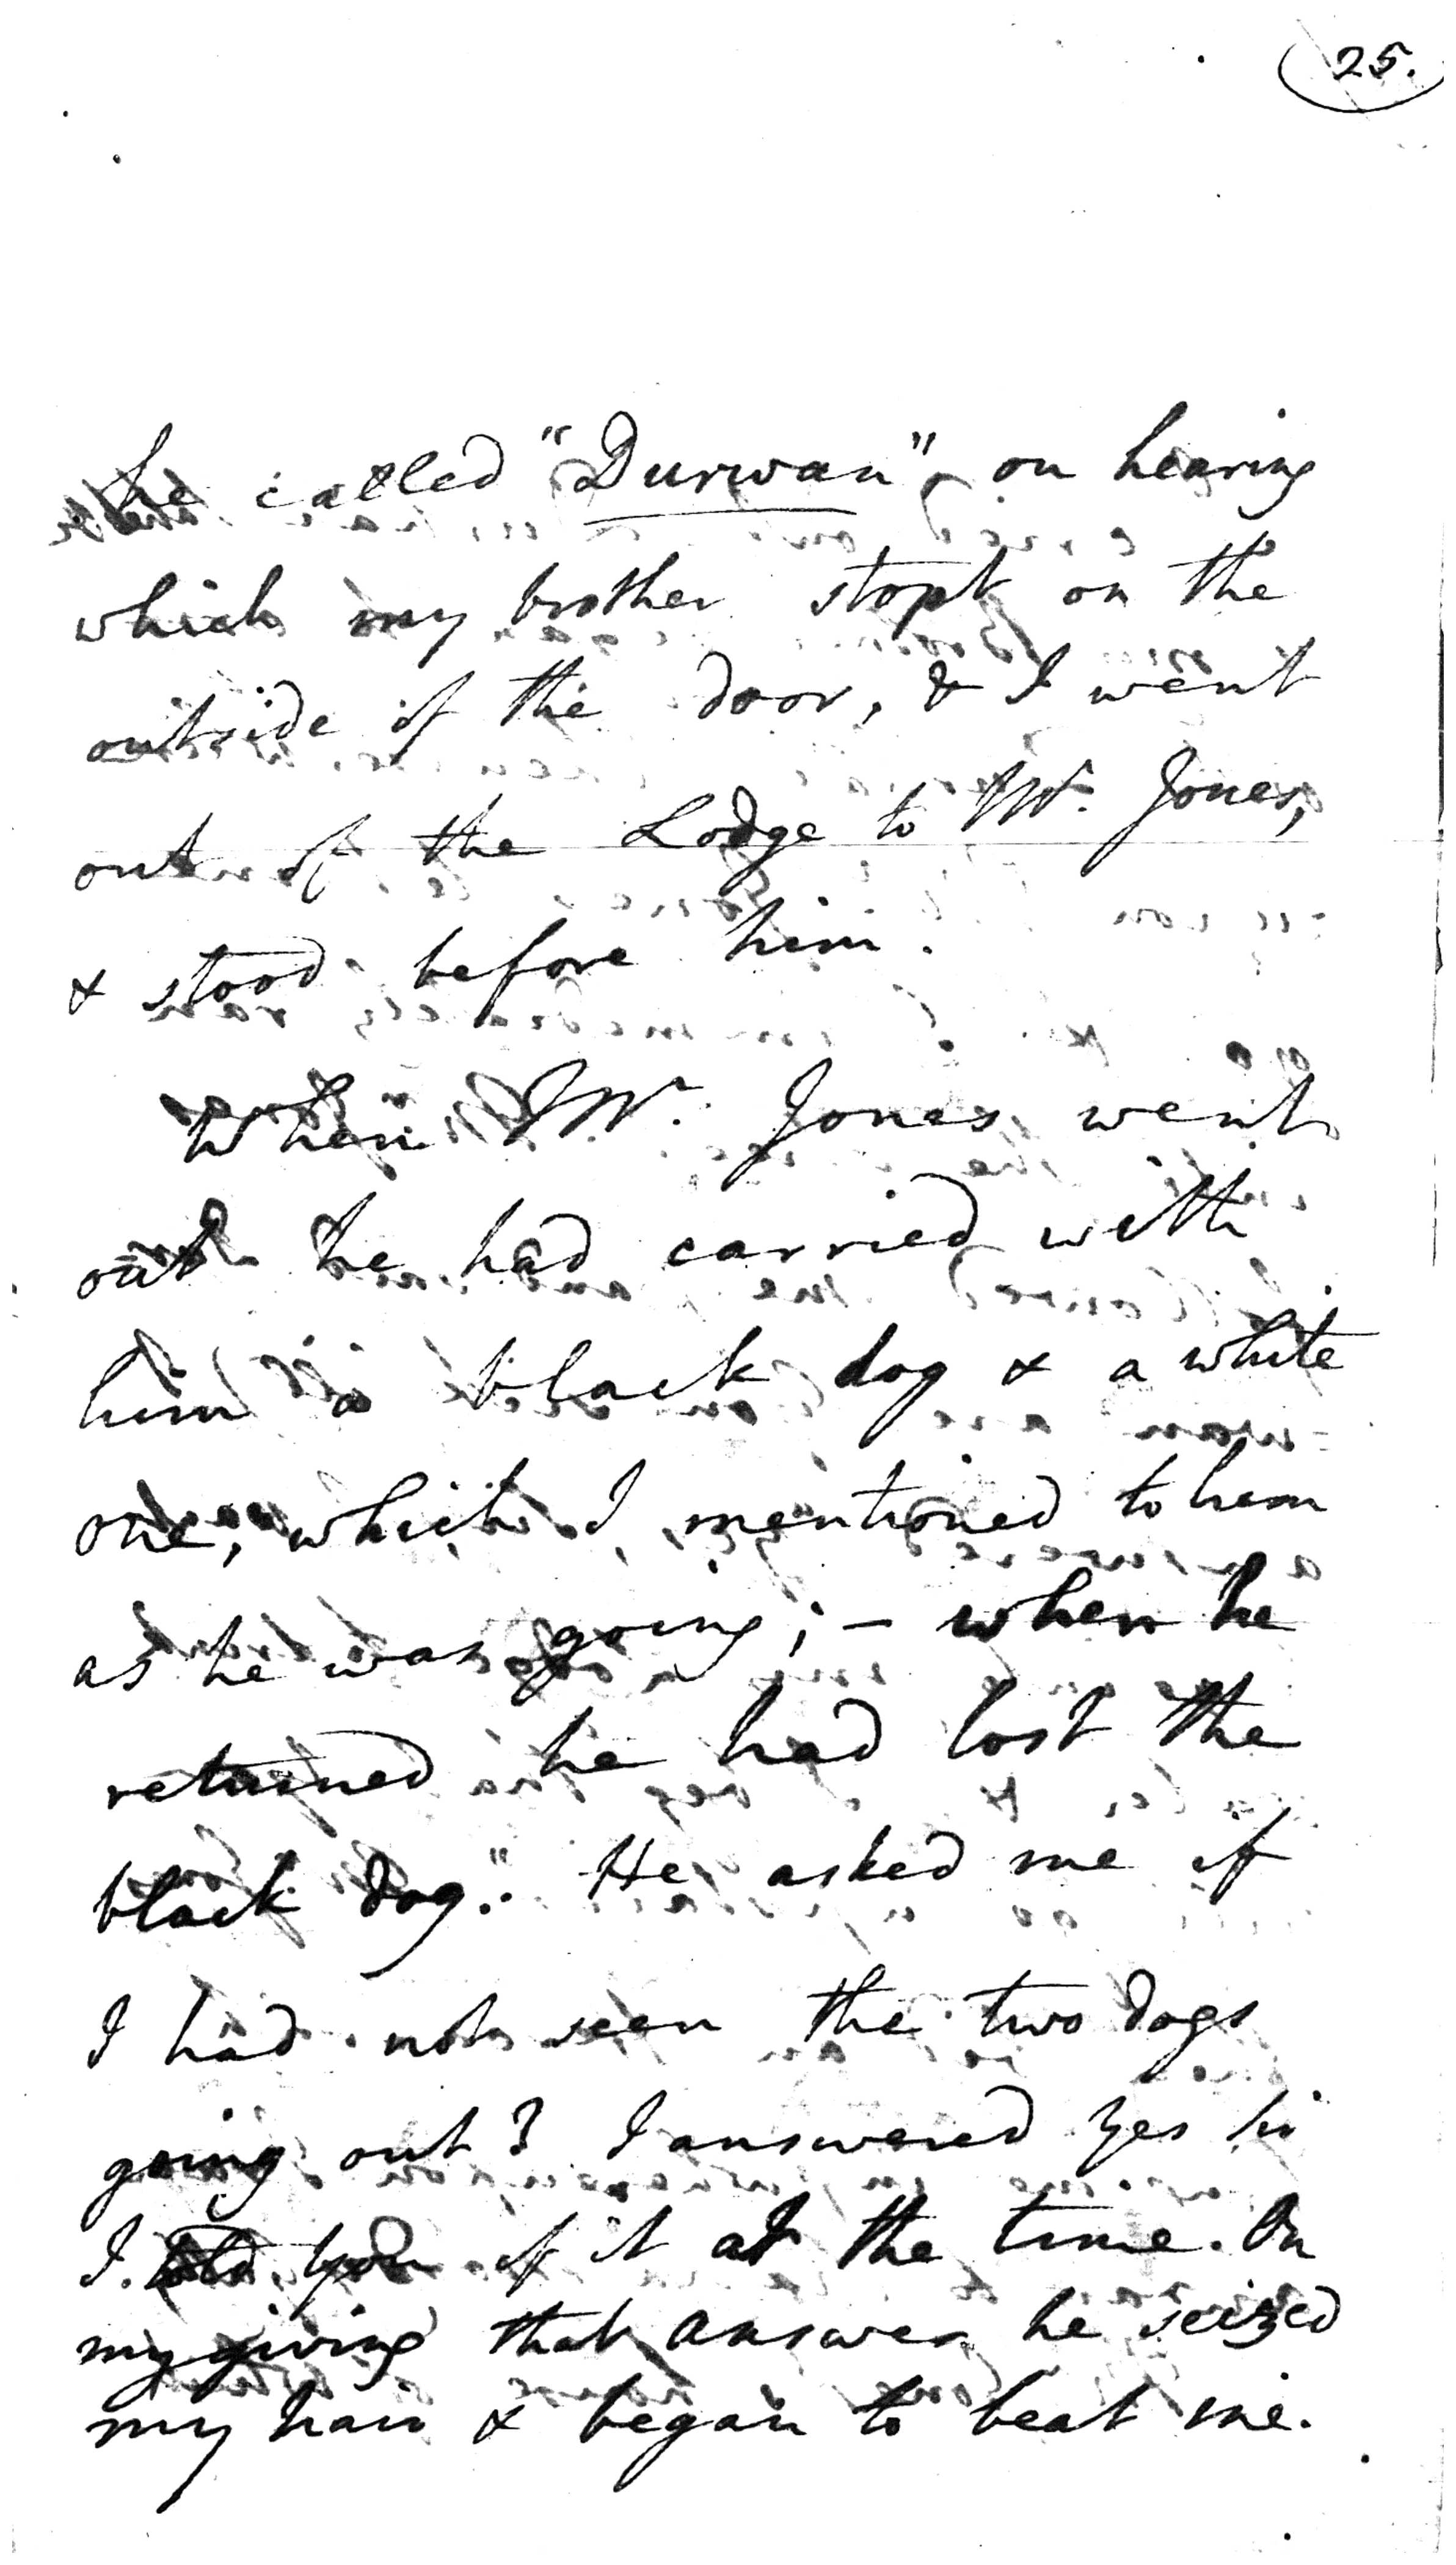 25.
he called "Durwan" on hearing
which my brother stopt on the
outside of the door, & I went
out of the Lodge to Mr. Jones,
& stood before him.
When Mr. Jones went
out he had carried with
him a black dog & a white
one, which I mentioned to him
as he was going; – when he
returned he had lost the
black dog." He asked me if
I had not seen the two dogs
going out? I answered Yes Sir
I told you of it at the time. On
my giving that answer he seized
my hair & began to beat me.